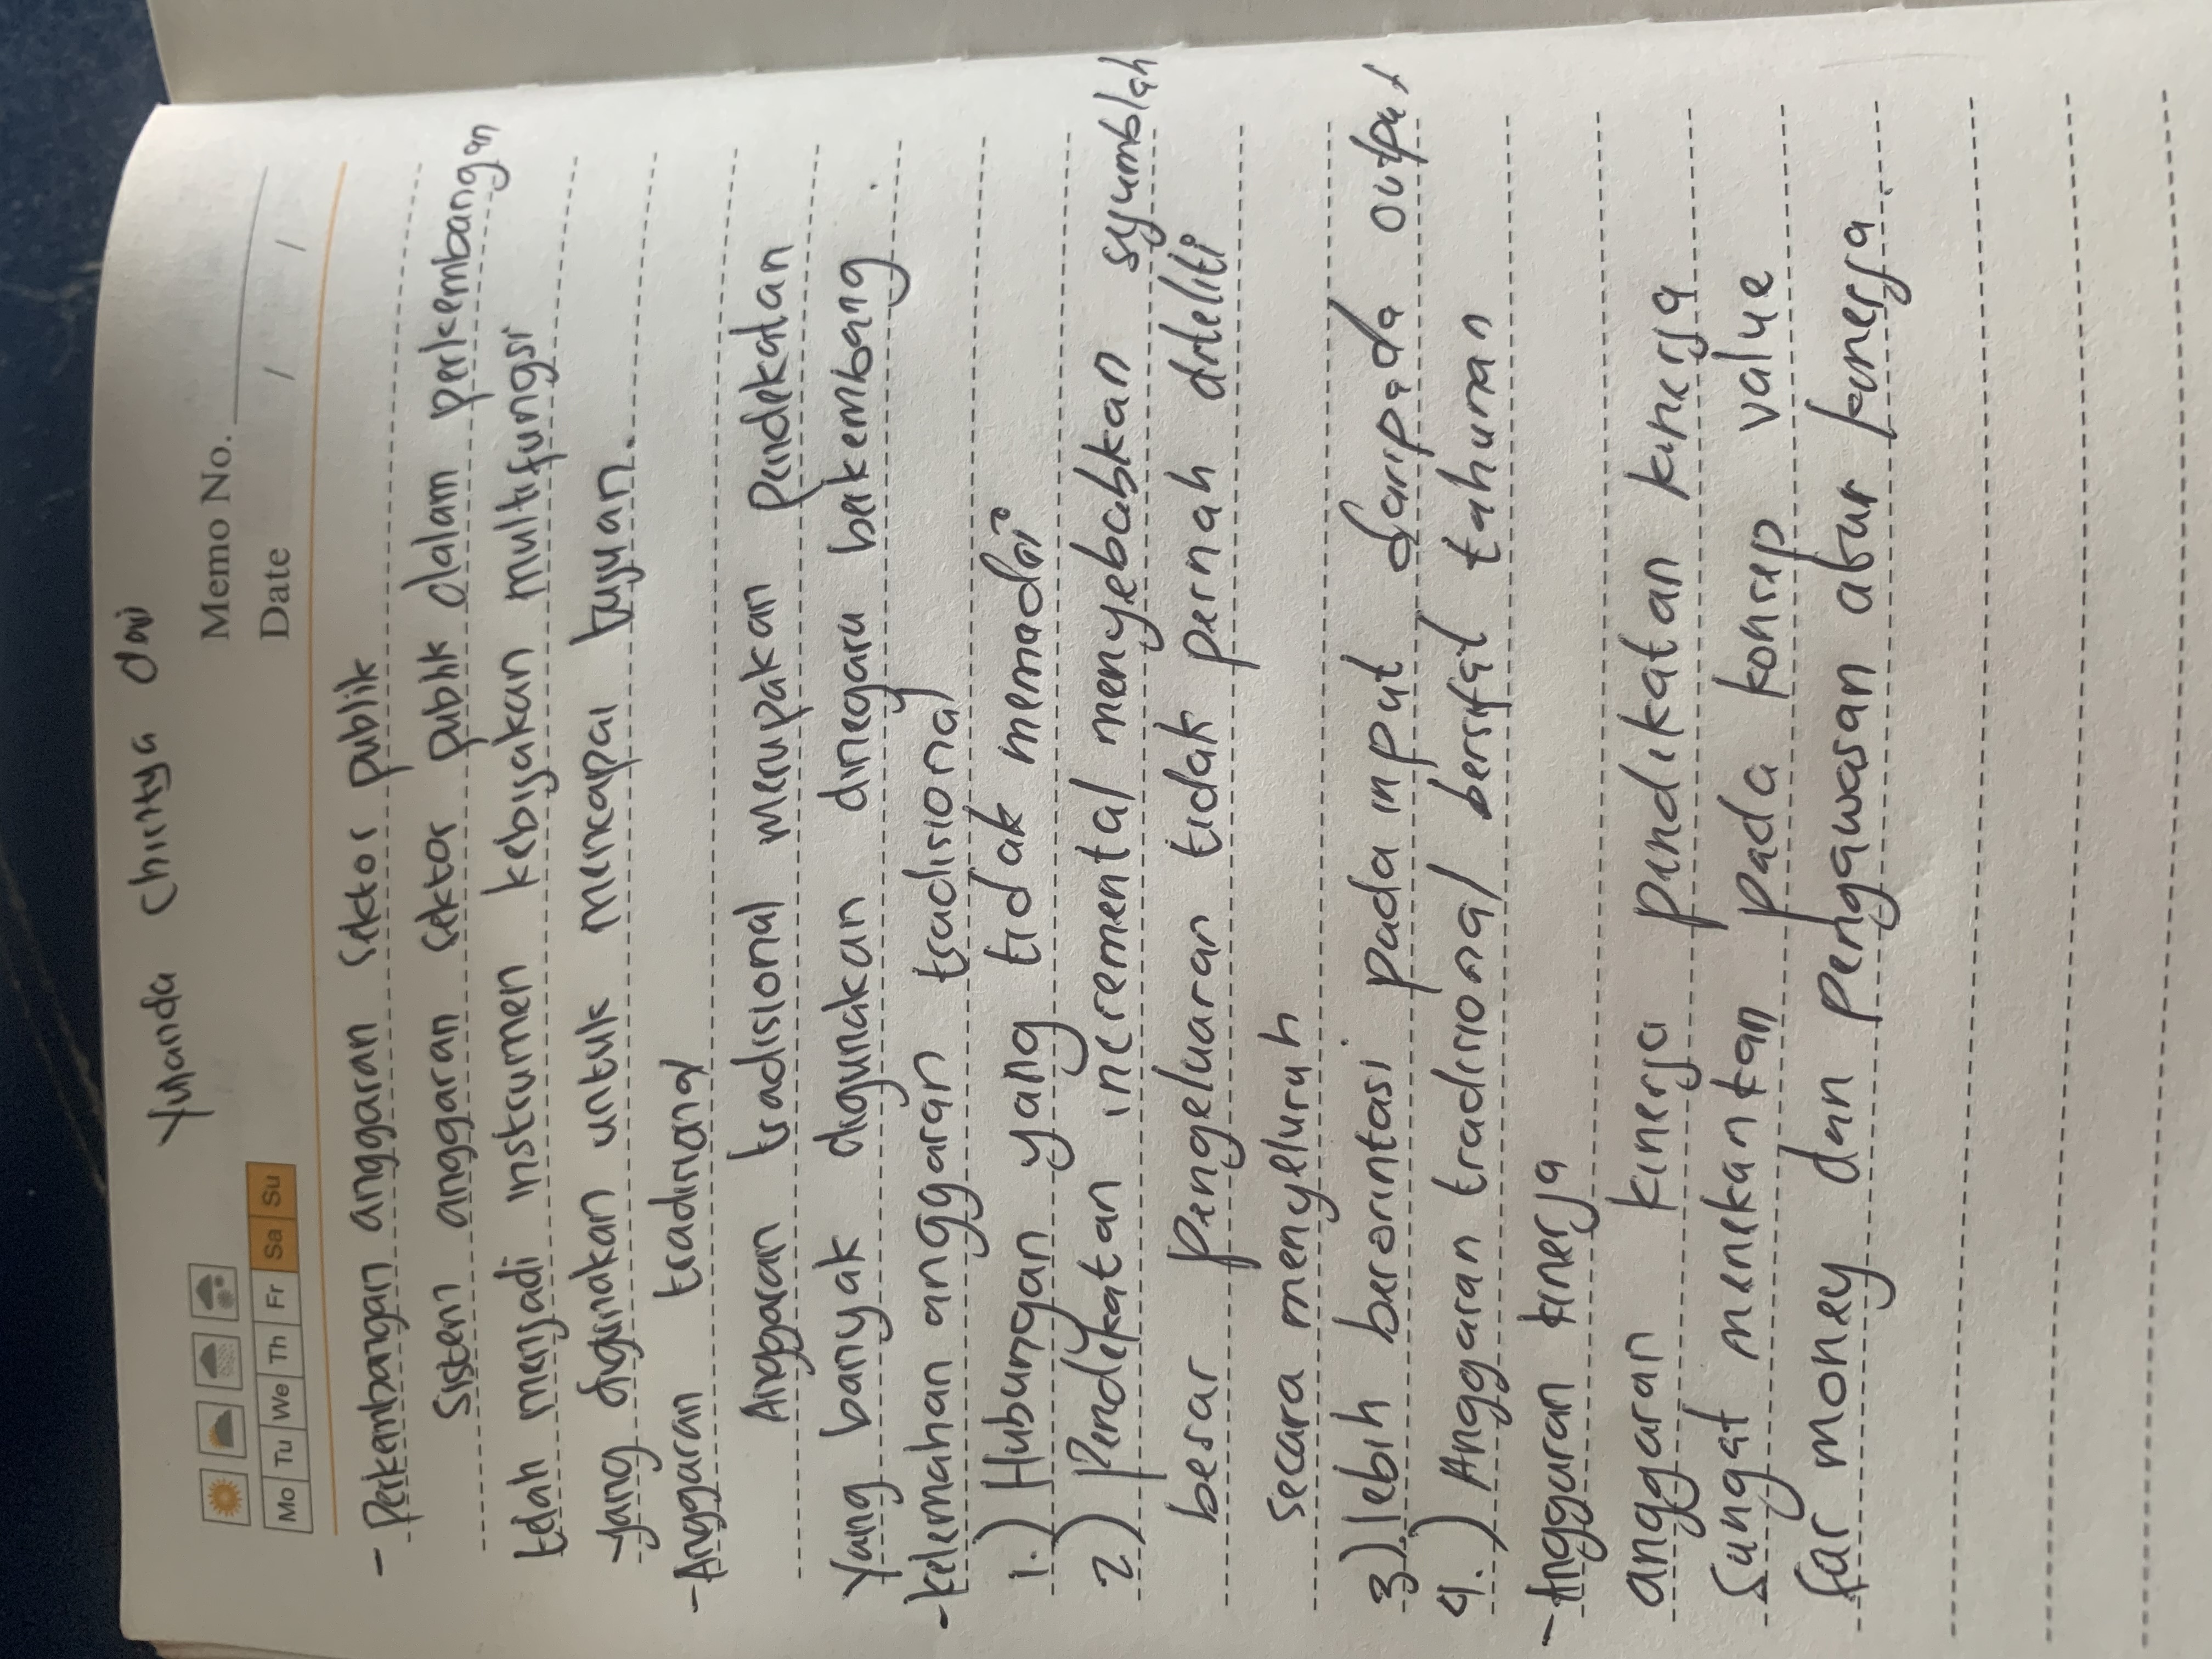 Yunanda Chintya dwi
Memo No.
Mo Tu We Th Fr Sa Su
Date / /
- Perkembangan anggaran sektor publik
Sistem anggaran sektor publik dalam perkembangan
telah menjadi instrumen kebijakan multifungsi
yang digunakan untuk mencapai tujuan.
- Anggaran tradisional
Anggaran tradisional merupakan pendekatan
yang banyak digunakan dinegara berkembang.
- kelemahan anggaran tradisional
1.) Hubungan yang tidak memadai
2) Pendekatan incremental menyebabkan syumblah
besar pengeluaran tidak pernah diteliti
secara menyeluruh
3) lebih berorintasi pada input daripada output
4.) Anggaran tradisional bersifat tahunan
- Anggaran kinerja
anggaran kinerja pendekatan kinerja
Sangat menekankan pada konsep value
far money dan pengawasan atur kinerja.